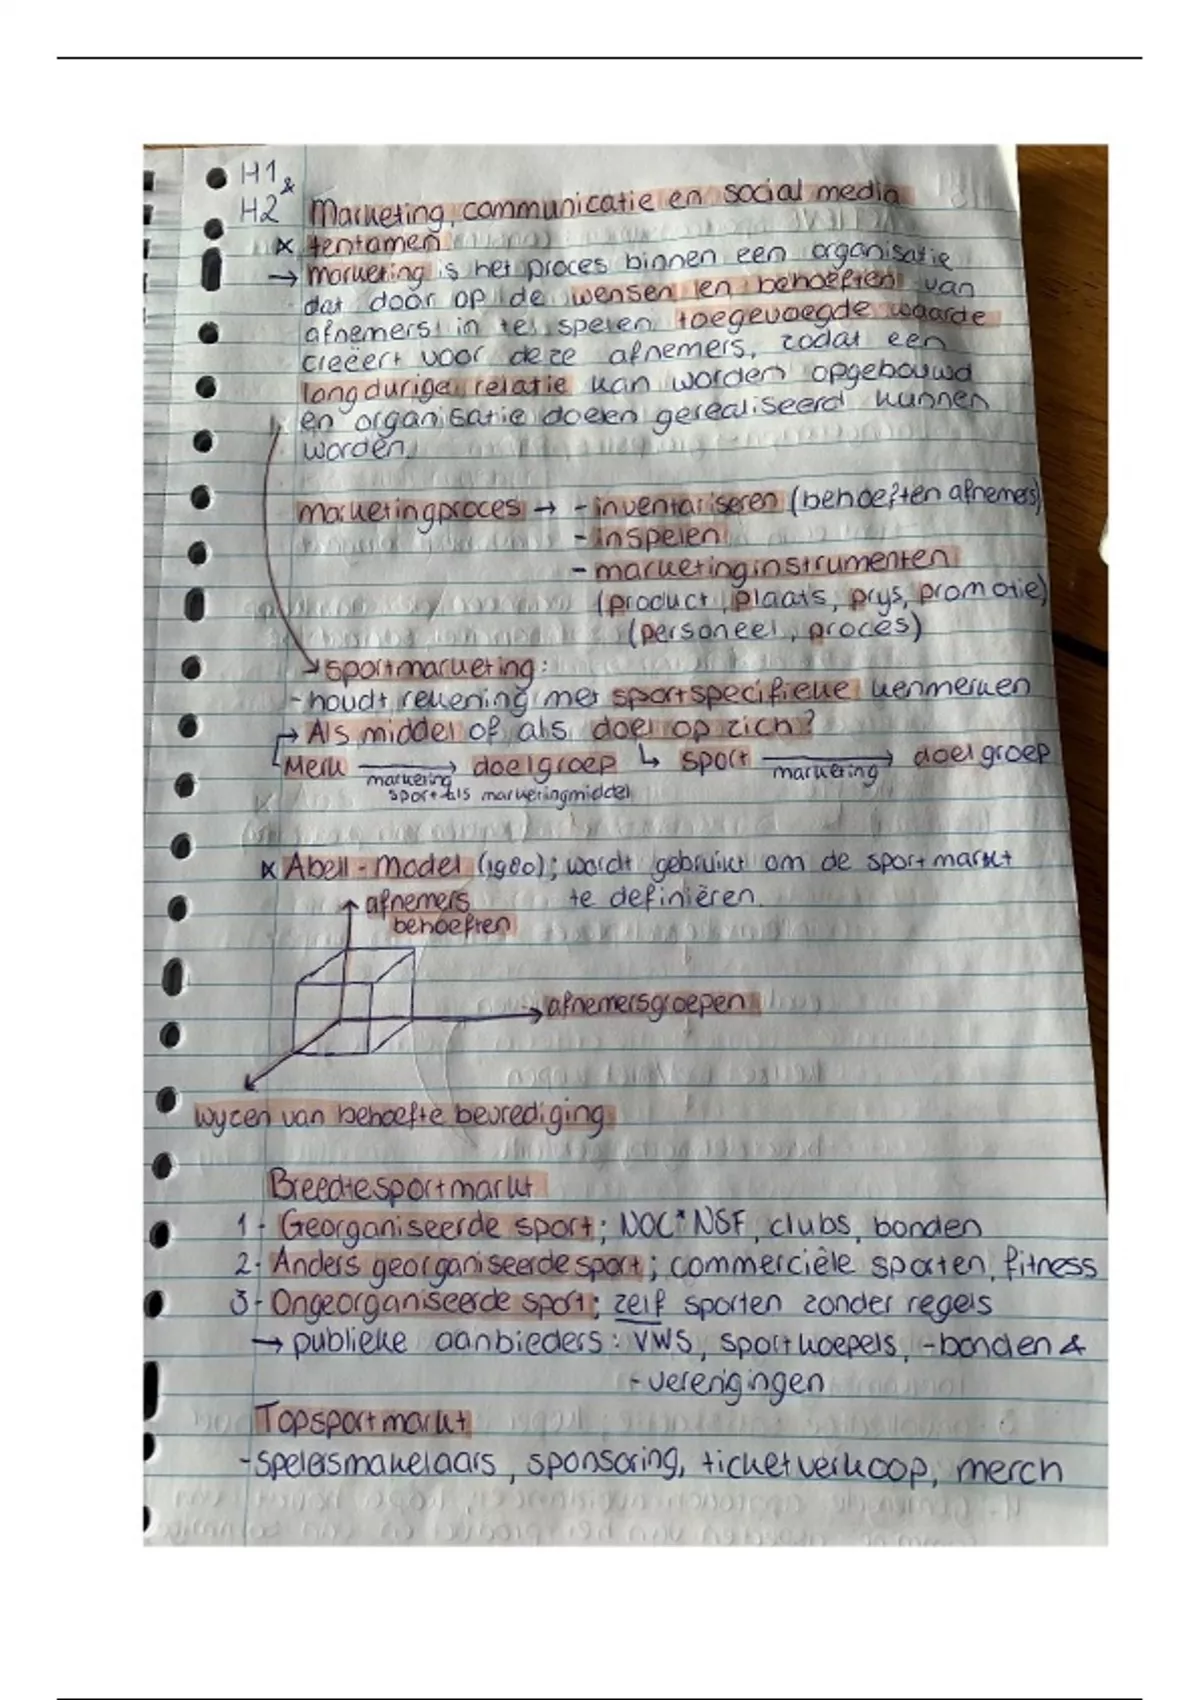 H1 &
H2 Marketing, communicatie en social media
x tentamen
→ marketing is het proces binnen een organisatie
dat door op de wensen en behoeften van
afnemers in te spelen toegevoegde waarde
creëert voor deze afnemers, zodat een
langdurige relatie kan worden opgebouwd
en organisatie doelen gerealiseerd kunnen
worden.
marketingproces → - inventariseren (behoeften afnemers)
- inspelen
- marketinginstrumenten
(product, plaats, prijs, promotie)
(personeel, proces)
→ sportmarketing:
- houdt rekening met sportspecifieke kenmerken
→ Als middel of als doel op zich?
Merk → doelgroep ↳ sport → doelgroep
marketing marketing
sport als marketingmiddel
x Abell-Model (1980); wordt gebruikt om de sportmarkt
te definiëren.
afnemers
behoeften
afnemersgroepen
wijzen van behoefte bevrediging
Breedtesportmarkt
1- Georganiseerde sport; NOC*NSF, clubs, bonden
2- Anders georganiseerde sport; commerciële sporten, fitness
3- Ongeorganiseerde sport; zelf sporten zonder regels
→ publieke aanbieders: VWS, sportkoepels, -bonden &
-verenigingen
Topsportmarkt
- spelersmakelaars, sponsoring, ticketverkoop, merch